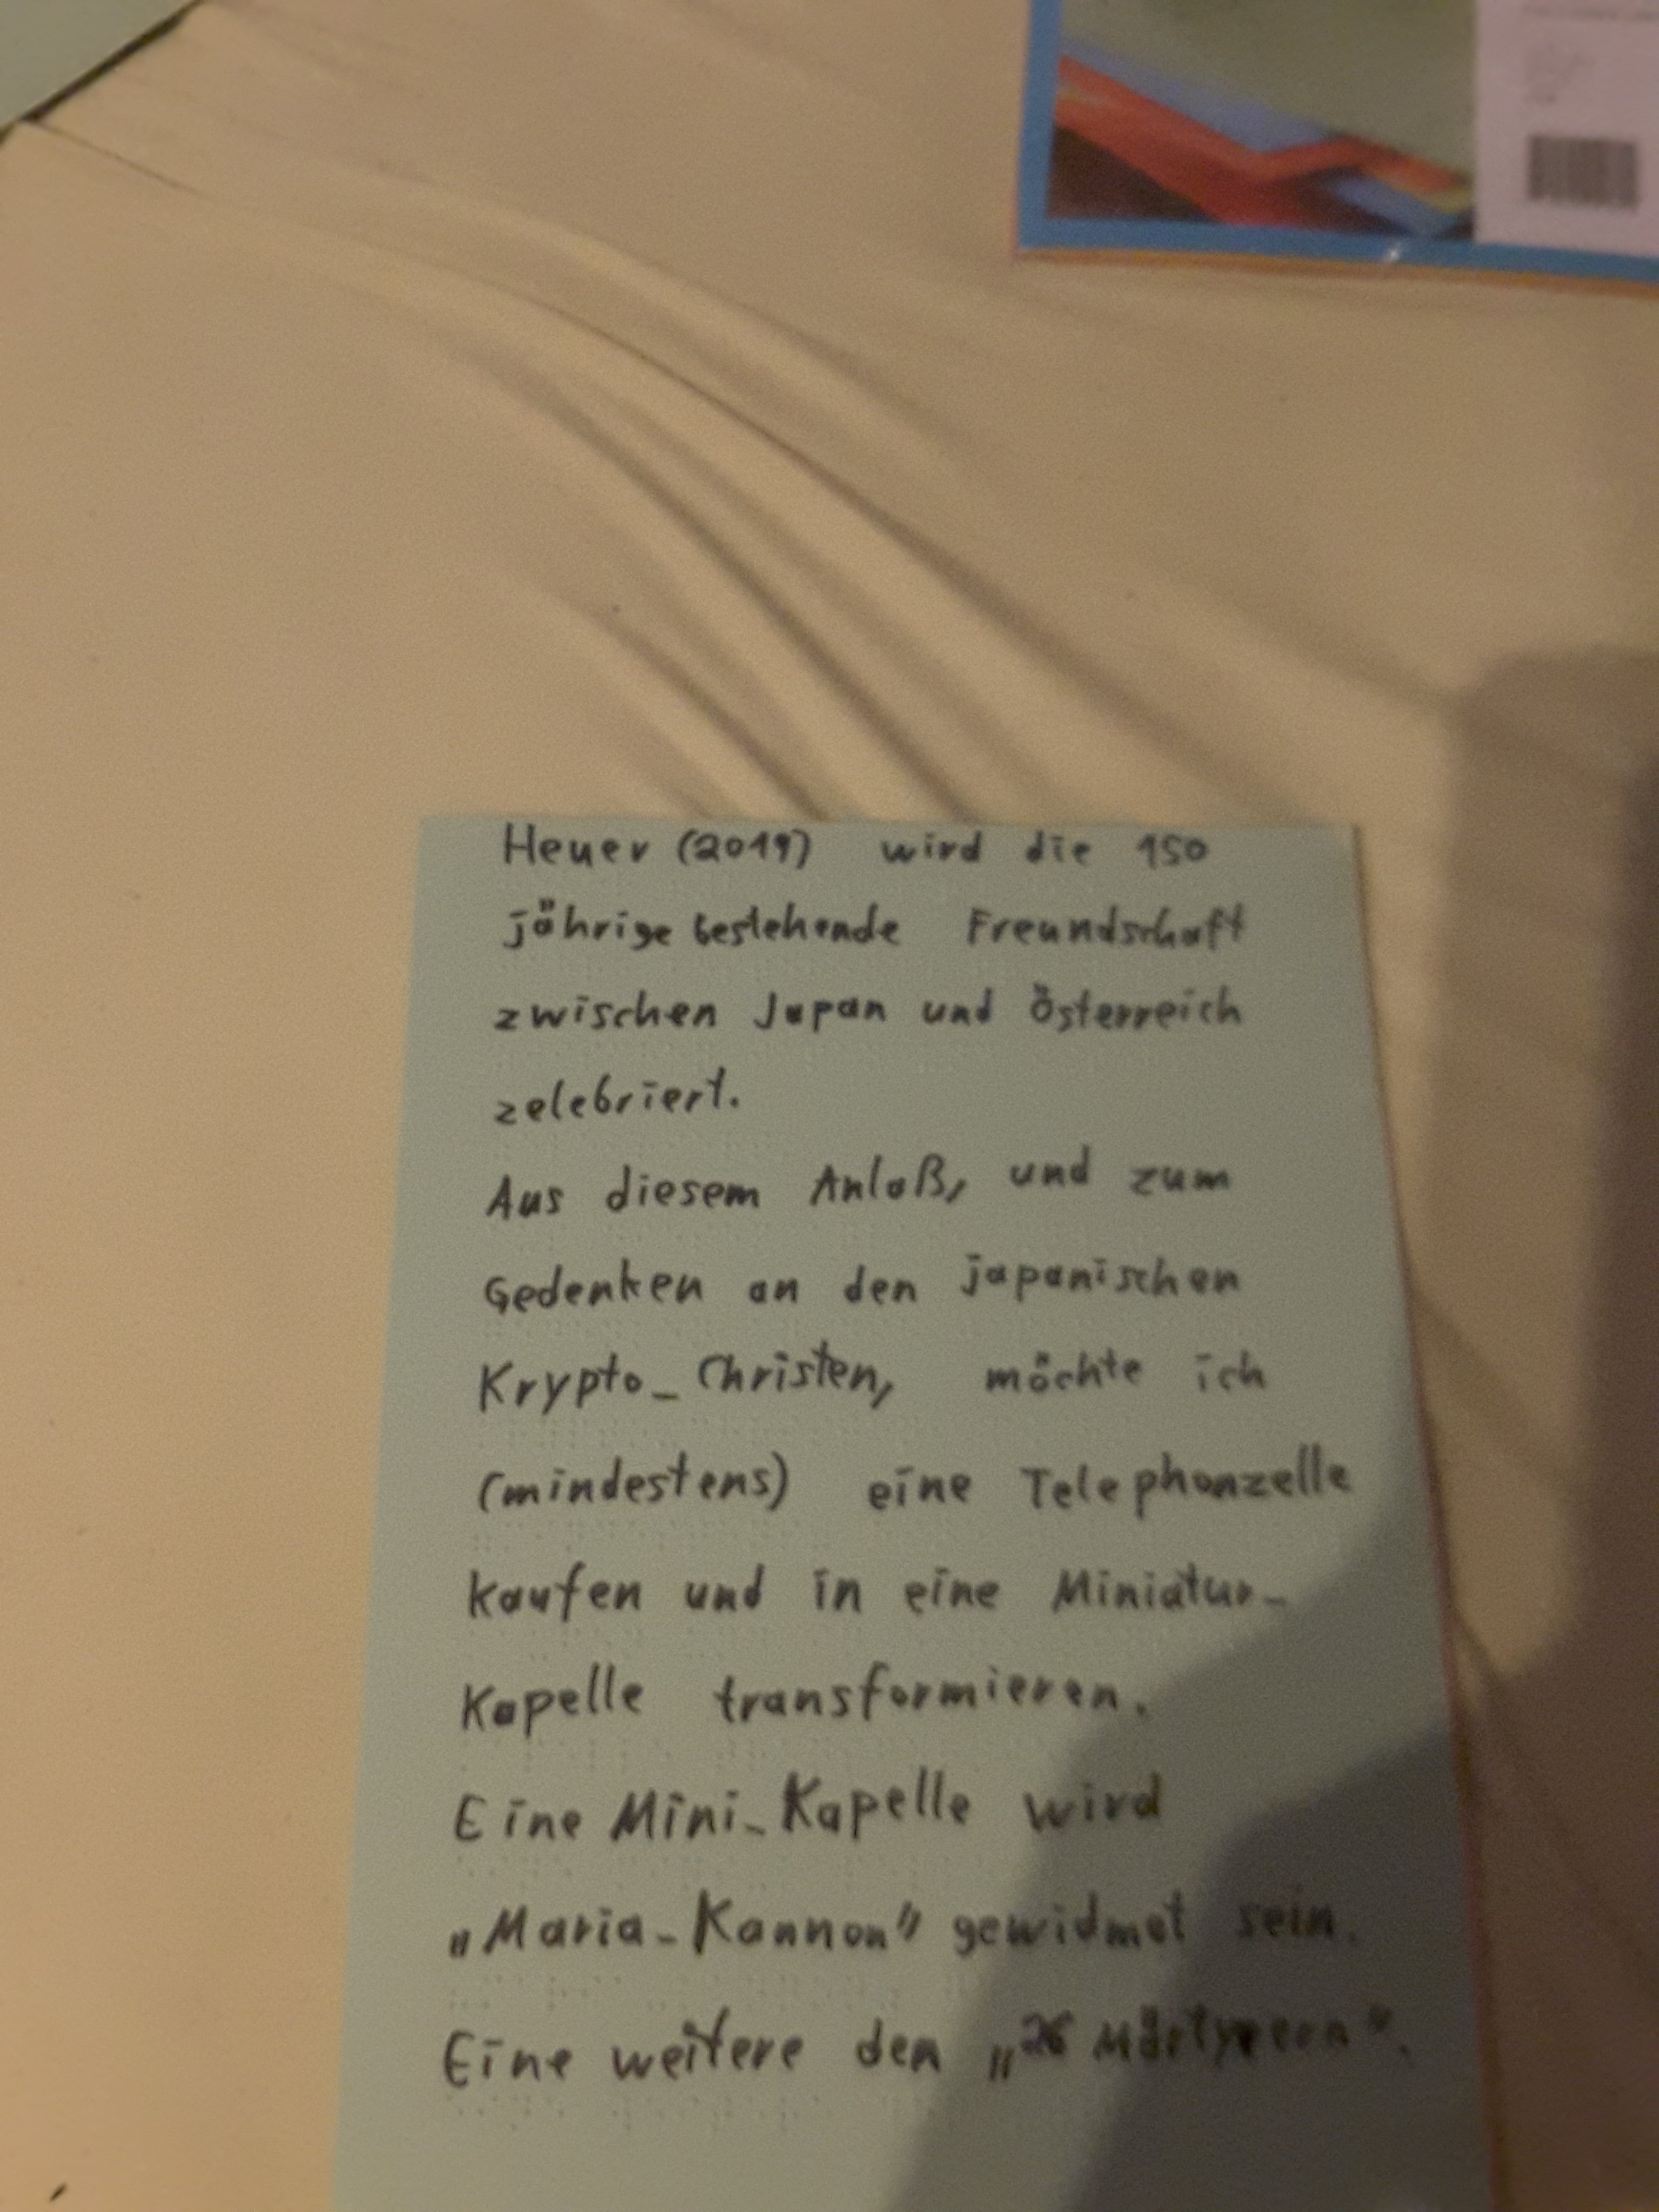 Heuer (2019) wird die 150
jährige bestehende Freundschaft
zwischen Japan und Österreich
zelebriert.
Aus diesem Anlaß, und zum
Gedenken an den japanischen
Krypto-Christen, möchte ich
(mindestens) eine Telephonzelle
kaufen und in eine Miniatur-
Kapelle transformieren.
Eine Mini-Kapelle wird
„Maria-Kannon" gewidmet sein.
Eine weitere den „26 Märtyrern".